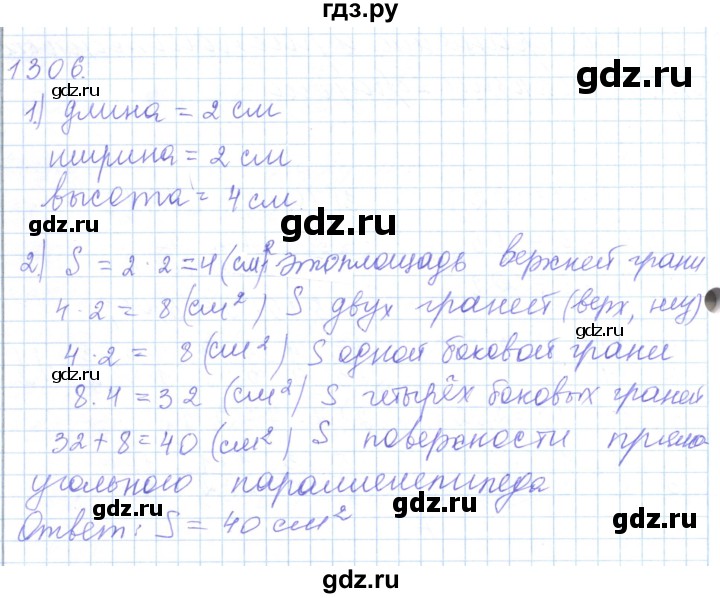 гдз.ру
1306.
gdz.ru
1) длина = 2 см
gdz.ru
ширина = 2 см
gdz.ru
высота = 4 см.
gdz.ru
gdz.ru
2) S = 2 · 2 = 4 (см)² это площадь верхней грани
gdz.ru
4 · 2 = 8 (см²) S двух граней (верх, низ)
gdz.ru
4 · 2 = 8 (см²) S одной боковой грани
gdz.ru
8 · 4 = 32 (см²) S четырёх боковых граней
gdz.ru
32 + 8 = 40 (см²) S поверхности прямо
угольного параллелепипеда
gdz.ru
Ответ: S = 40 см²
gdz.ru
gdz.ru